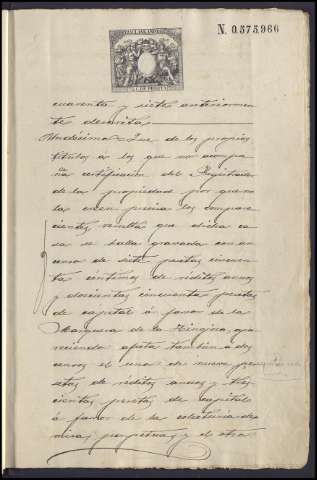 N. 0.575,966
cuarenta y siete anteriormen
te descrita
Undécima. Que de los propios
títulos a los que no acompa
ña certificacion del Registrador
de la propiedad por que no
la creen precisa los compare
cientes, resulta que dicha ca
sa se halla gravada con un
censo de siete pesetas cincuen
ta centimos de réditos anuos
y doscientas cincuenta pesetas
de capital á favor de la
Marquesa de la apa
reciendo afecta tambien a dos
censos el uno de nueve pe
setas de réditos anuos y tres
cientas pesetas de capital
á favor de la colecturia de
misas perpetuas y el otro